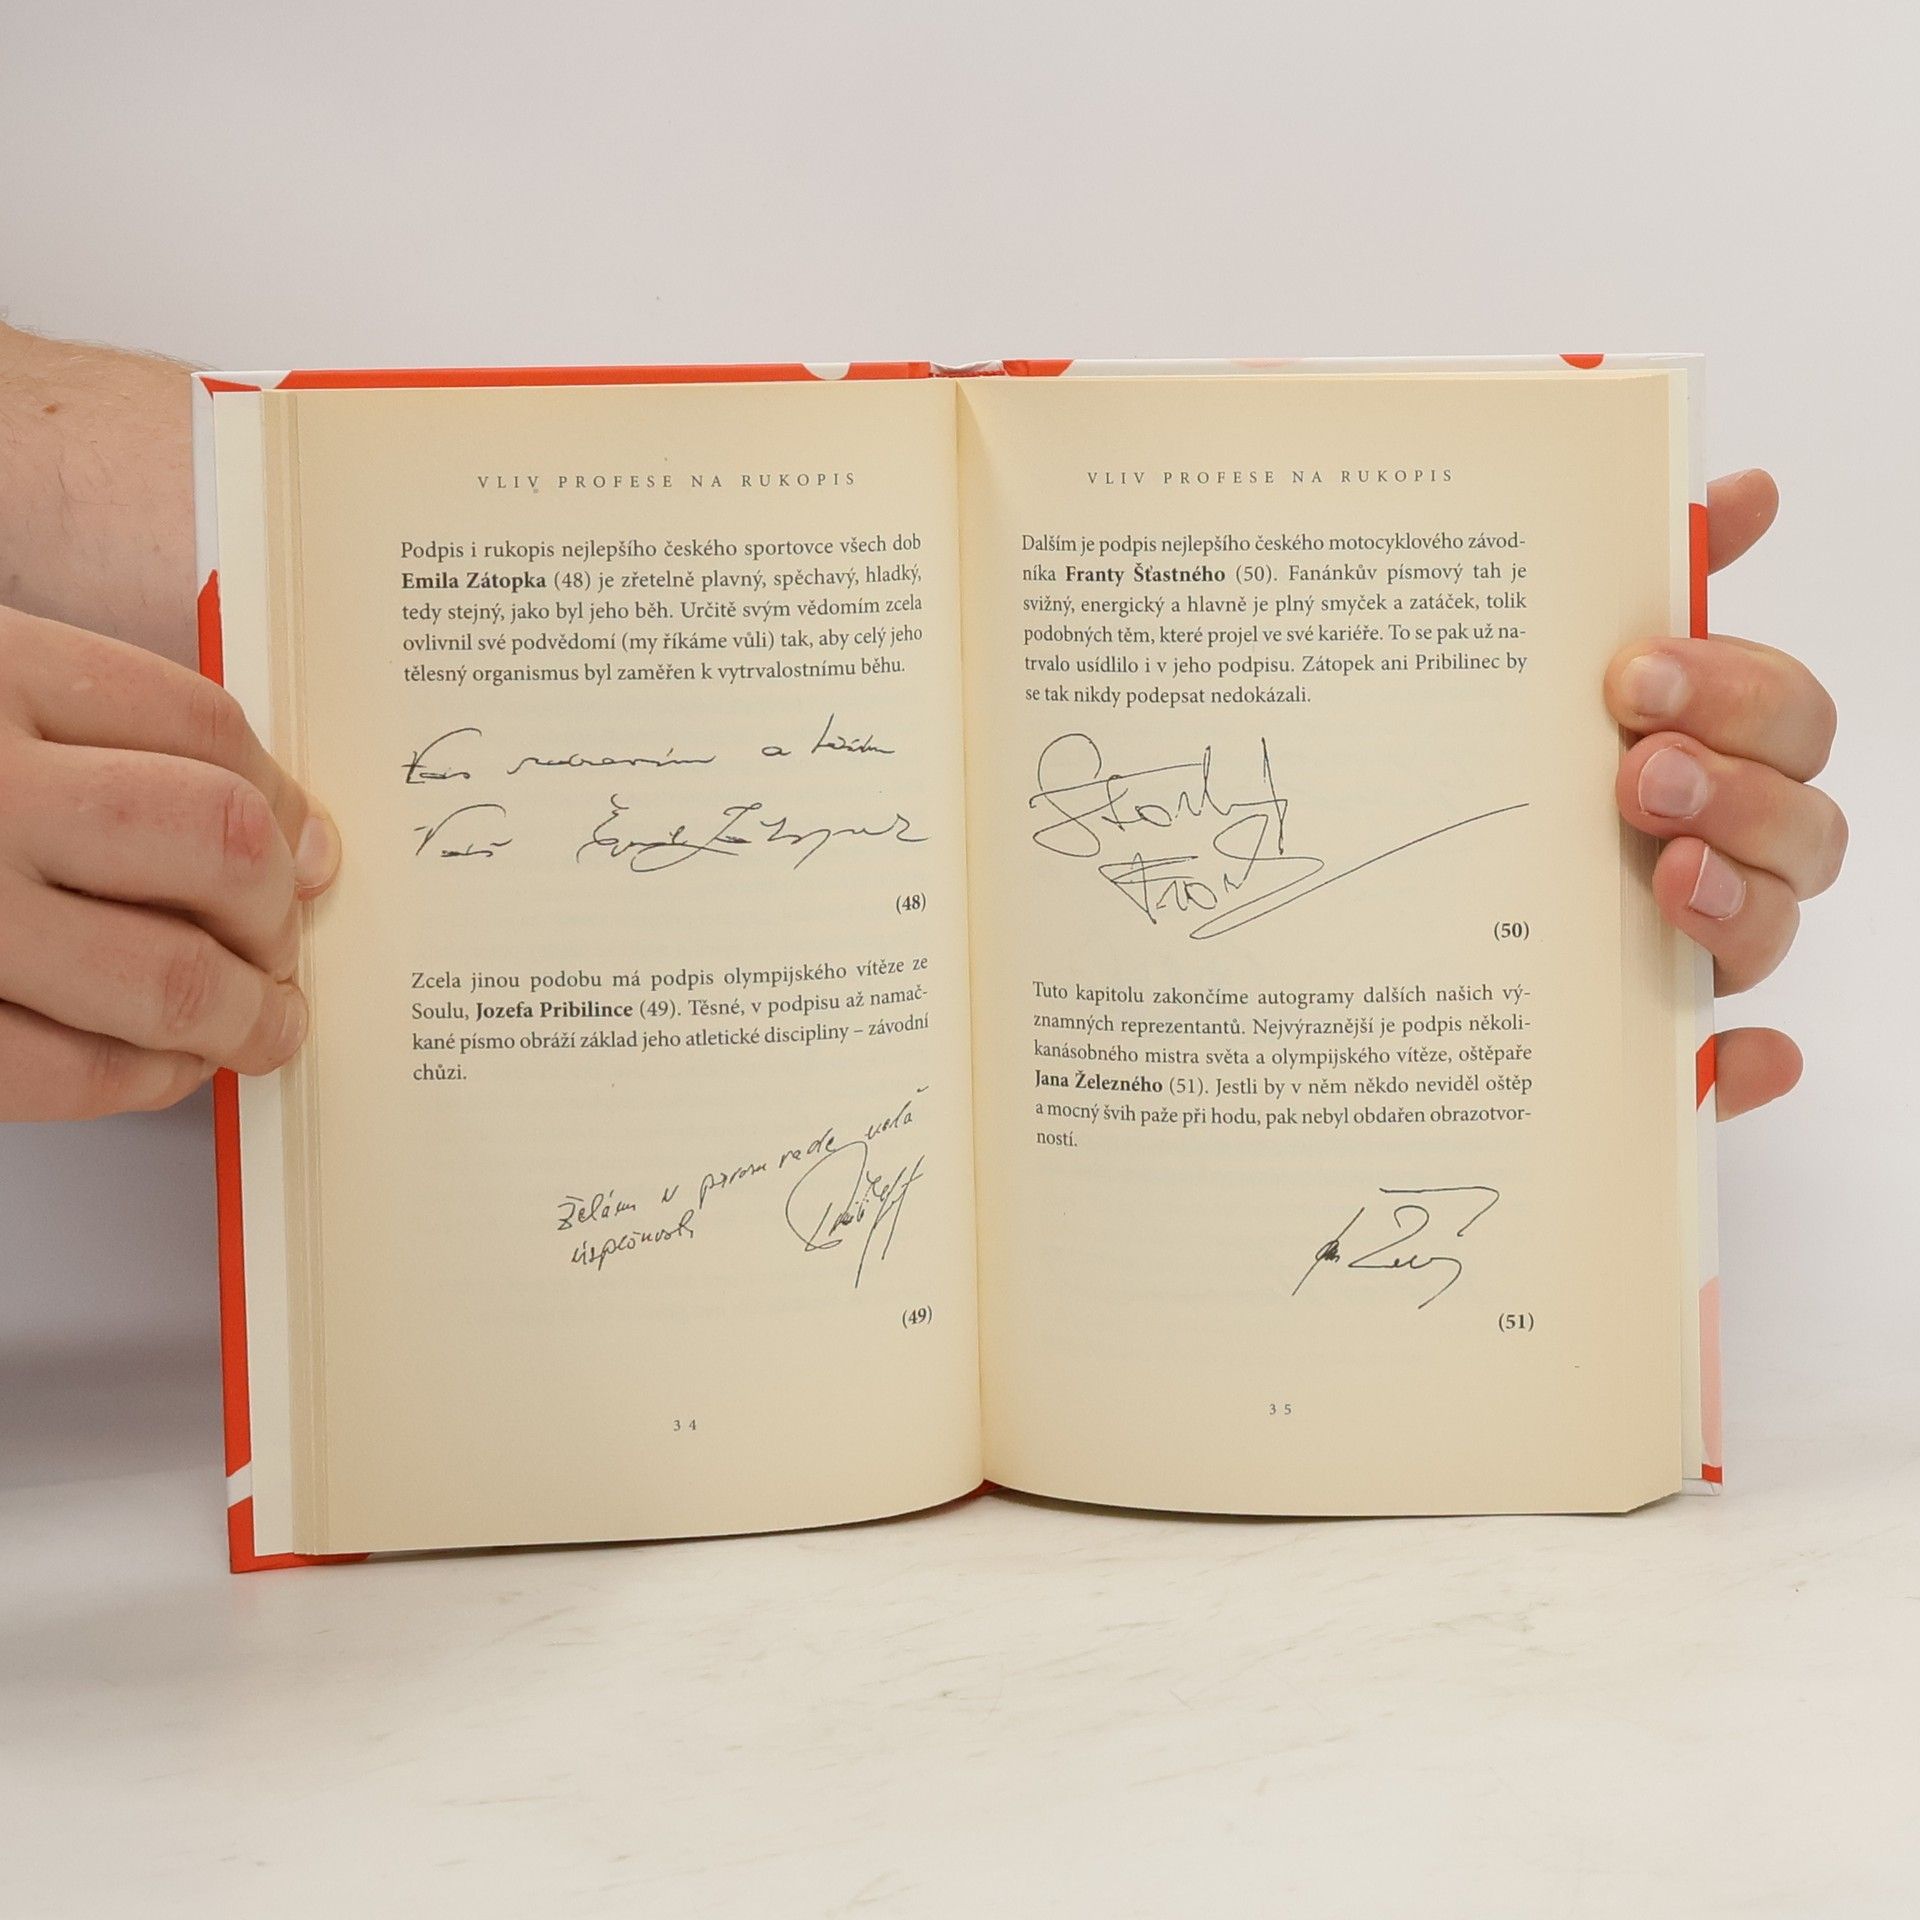 VLIV PROFESE NA RUKOPIS
Podpis i rukopis nejlepšího českého sportovce všech dob
Emila Zátopka (48) je zřetelně plavný, spěchavý, hladký,
tedy stejný, jako byl jeho běh. Určitě svým vědomím zcela
ovlivnil své podvědomí (my říkáme vůli) tak, aby celý jeho
tělesný organismus byl zaměřen k vytrvalostnímu běhu.
a
Váš Emil Zátopek
(48)
Zcela jinou podobu má podpis olympijského vítěze ze
Soulu, Jozefa Pribilince (49). Těsné, v podpisu až namač-
kané písmo obráží základ jeho atletické disciplíny – závodní
chůzi.
Želám
(49)
34
VLIV PROFESE NA RUKOPIS
Dalším je podpis nejlepšího českého motocyklového závod-
níka Franty Šťastného (50). Fanánkův písmový tah je
svižný, energický a hlavně je plný smyček a zatáček, tolik
podobných těm, které projel ve své kariéře. To se pak už na-
trvalo usídlilo i v jeho podpisu. Zátopek ani Pribilinec by
se tak nikdy podepsat nedokázali.
(50)
Tuto kapitolu zakončíme autogramy dalších našich vý-
znamných reprezentantů. Nejvýraznější je podpis několi-
kanásobného mistra světa a olympijského vítěze, oštěpaře
Jana Železného (51). Jestli by v něm někdo neviděl oštěp
a mocný švih paže při hodu, pak nebyl obdařen obrazotvor-
ností.
(51)
35